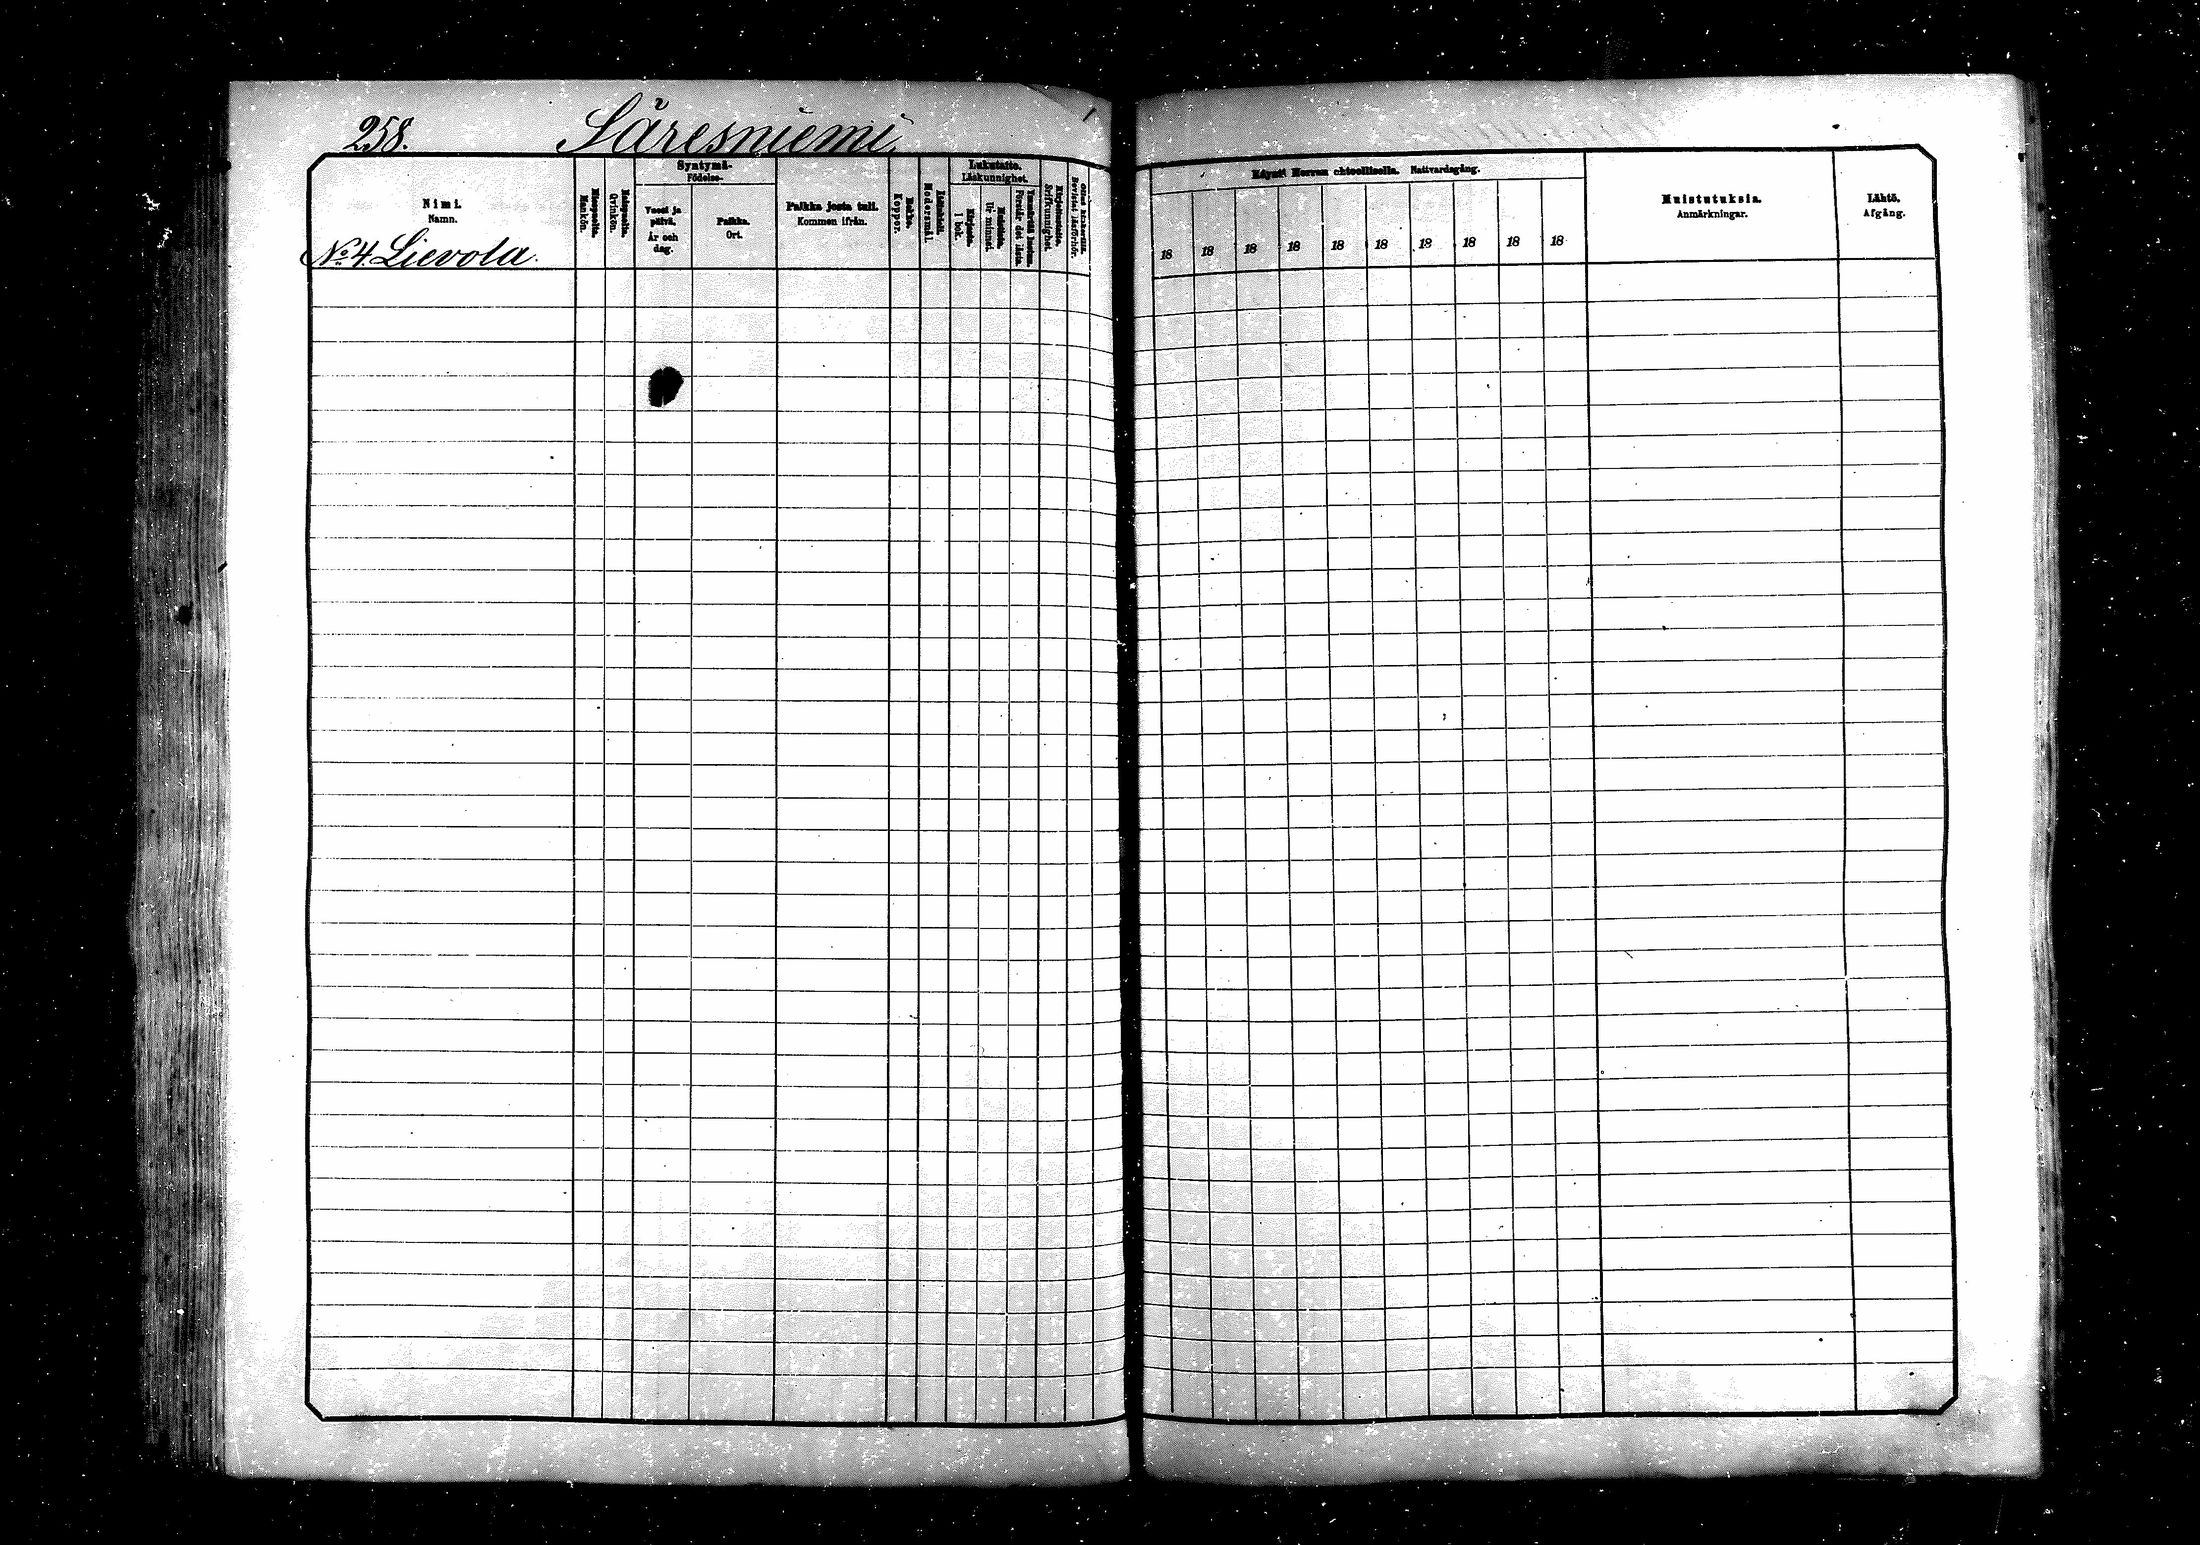 258. Säresniemi.
Nimi.
Namn.
No 4. Lievola.
Miespuolia.
Mankön.
Vaimopuolia.
Qvinkön.
Syntymä-
Födelse-
Vuosi ja päivä.
År och dag.
Paikka.
Ort.
Paikka josta tuli.
Kommen ifrån.
Rokko.
Koppor.
Äidinkieli.
Modersmål.
Lukutaito.
Läskunnighet.
Kirjasta.
I bok.
Ulkoa.
Ur minnet.
Förstår det lästa.
Kirjoitustaito.
Skrifkunnighet.
Bevistat läsförhör.
Käynti Herran ehtoollisella. Nattvardsgång.
18 18 18 18 18 18 18 18 18 18
Muistutuksia.
Anmärkningar.
Lähtö.
Afgång.